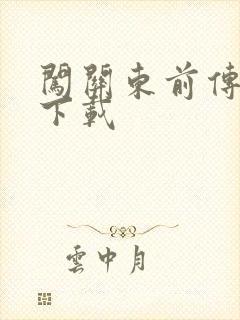 闖關東前傳
下載
雲中月